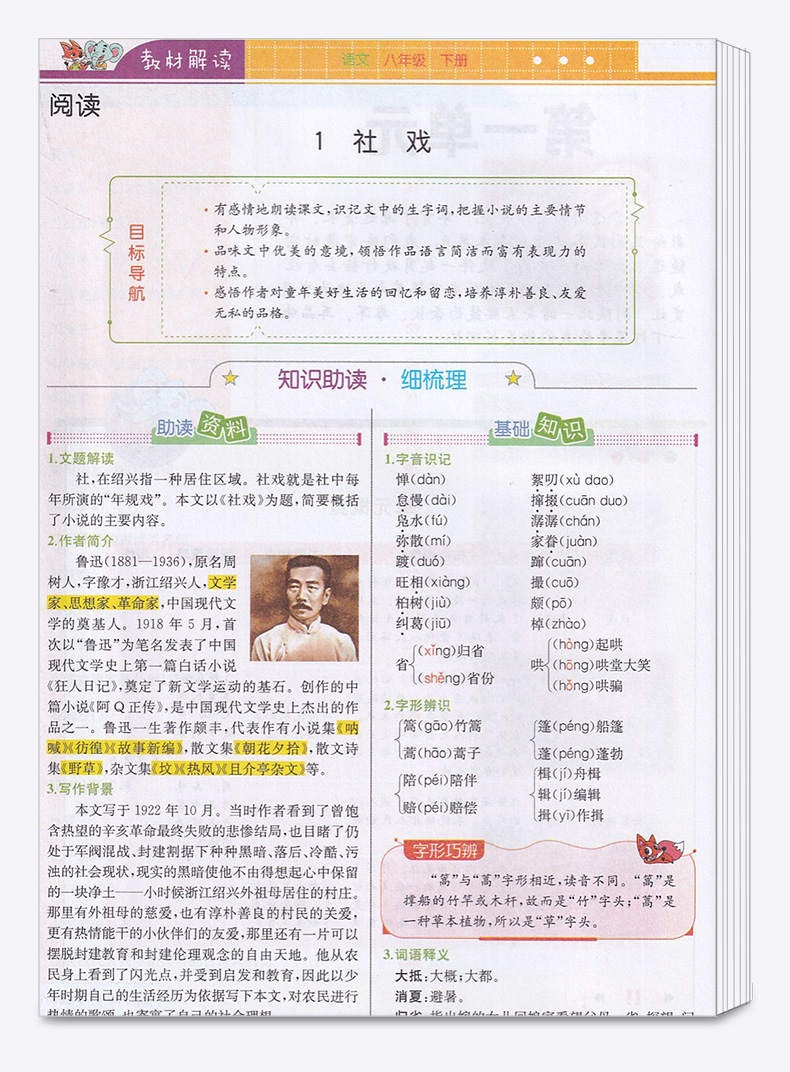 教材解读
语文 八年级 下册
阅读
1 社 戏
目标导航
·有感情地朗读课文,识记文中的生字词,把握小说的主要情节
和人物形象。
·品味文中优美的意境,领悟作品语言简洁而富有表现力的
特点。
·感悟作者对童年美好生活的回忆和留恋,培养淳朴善良、友爱
无私的品格。
知识助读·细梳理
助读资料
1.文题解读
社,在绍兴指一种居住区域。社戏就是社中每
年所演的“年规戏”。本文以《社戏》为题,简要概括
了小说的主要内容。
2.作者简介
鲁迅(1881—1936),原名周
树人,字豫才,浙江绍兴人,文学
家、思想家、革命家,中国现代文
学的奠基人。1918 年 5 月,首
次以“鲁迅”为笔名发表了中国
现代文学史上第一篇白话小说
《狂人日记》,奠定了新文学运动的基石。创作的中
篇小说《阿 Q 正传》,是中国现代文学史上杰出的作
品之一。鲁迅一生著作颇丰,代表作有小说集《呐
喊》《彷徨》《故事新编》,散文集《朝花夕拾》,散文诗
集《野草》,杂文集《坟》《热风》《且介亭杂文》等。
3.写作背景
本文写于 1922 年 10 月。当时作者看到了曾饱
含热望的辛亥革命最终失败的悲惨结局,也目睹了仍
处于军阀混战、封建割据下种种黑暗、落后、冷酷、污
浊的社会现状,现实的黑暗使他不由得想起心中保留
的一块净土——小时候浙江绍兴外祖母居住的村庄。
那里有外祖母的慈爱,也有淳朴善良的村民的关爱,
更有热情能干的小伙伴们的友爱,那里还有一片可以
摆脱封建教育和封建伦理观念的自由天地。他从农
民身上看到了闪光点,并受到启发和教育,因此以少
年时期自己的生活经历为依据写下本文,对农民进行
热情的歌颂,也寄寓了自己的社会理想。
基础知识
1.字音识记
惮(dàn) 絮叨(xù dao)
怠慢(dài) 撺掇(cuān duo)
凫水(fú) 潺潺(chán)
弥散(mí) 家眷(juàn)
踱(duó) 蹿(cuān)
旺相(xiàng) 撮(cuō)
桕树(jiù) 颇(pō)
纠葛(jiū) 棹(zhào)
省{(xǐng)归省 (shěng)省份
哄{(hòng)起哄 (hōng)哄堂大笑 (hǒng)哄骗
2.字形辨识
篙(gāo)竹篙 篷(péng)船篷
蒿(hāo)蒿子 蓬(péng)蓬勃
陪(péi)陪伴 楫(jí)舟楫
赔(péi)赔偿 辑(jí)编辑
揖(yī)作揖
字形巧辨
“篙”与“蒿”字形相近,读音不同。“篙”是
撑船的竹竿或木杆,故而是“竹”字头;“蒿”是
一种草本植物,所以是“草”字头。
3.词语释义
大抵:大概;大都。
消夏:避暑。
归省:指出嫁的女儿回娘家看望父母。省,探望、问